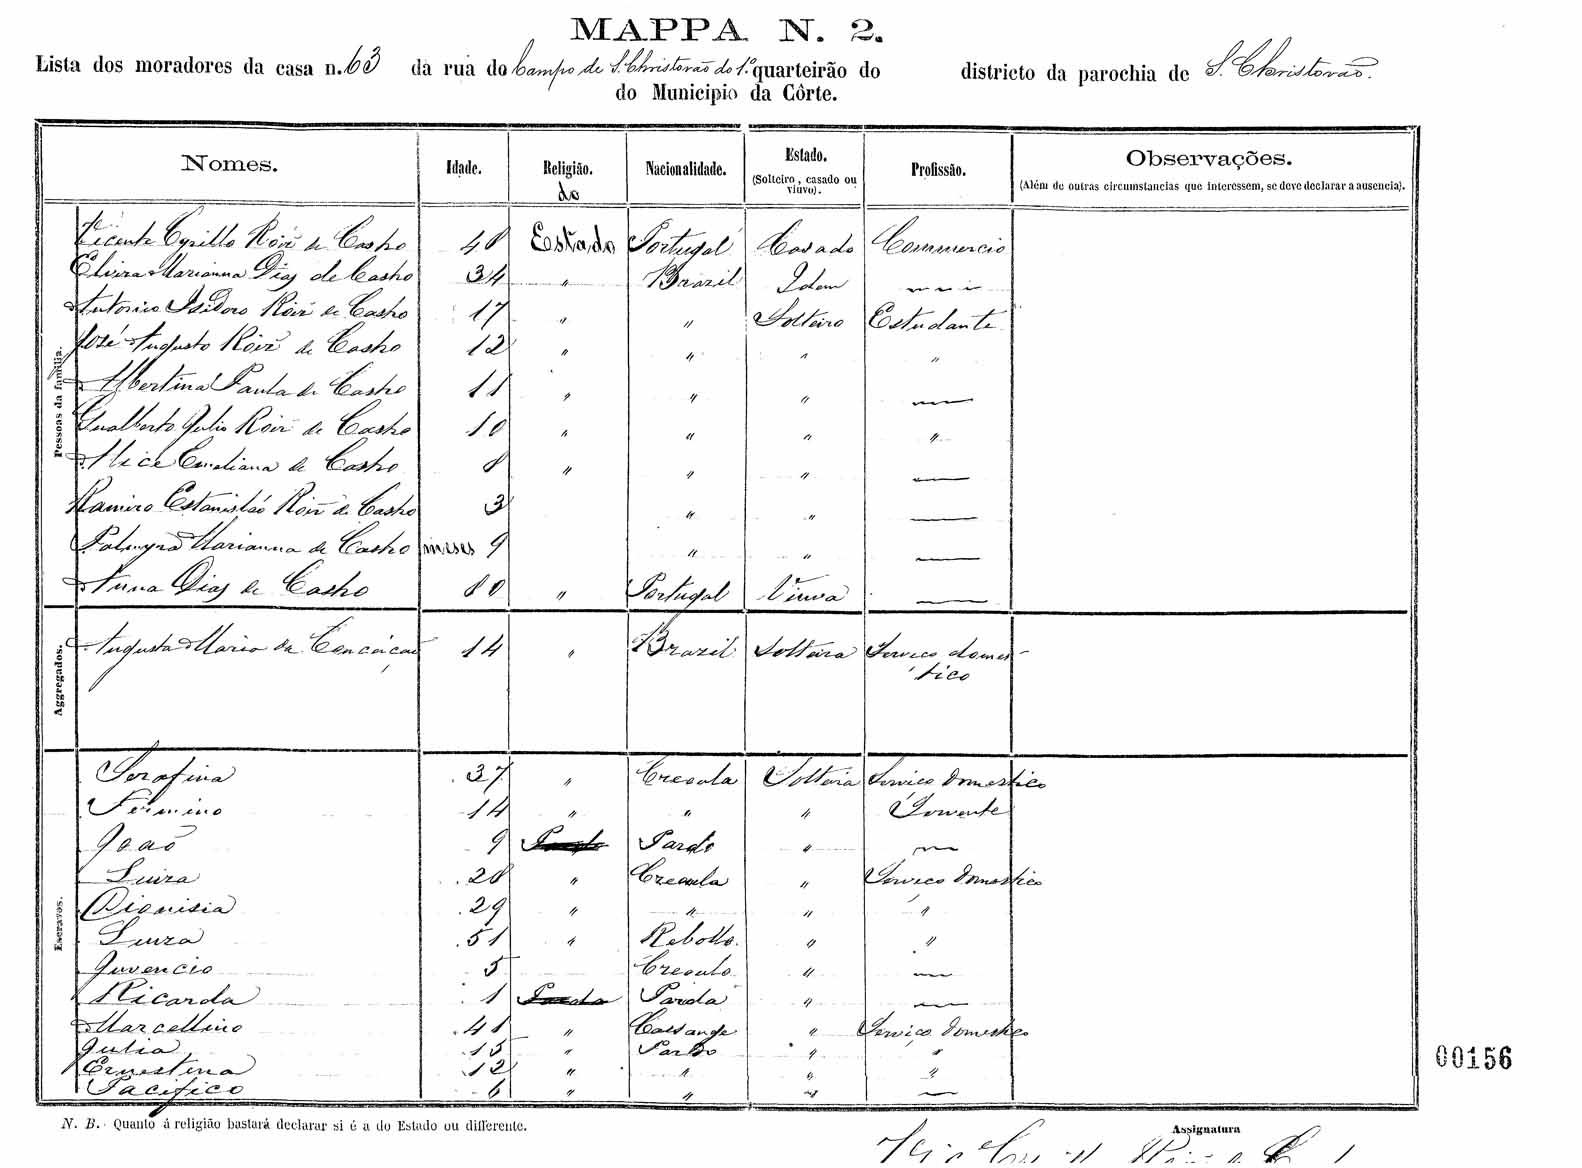 MAPPA N. 2.
Lista dos moradores da casa n. 63 da rua do Campo de S. Christovão do 1.º quarteirão do districto da parochia de S. Christovão.
do Municipio da Côrte.
Nomes. Idade. Religião. Nacionalidade. Estado. (Solteiro, casado ou viuvo). Profissão. Observações. (Além de outras circumstancias que interessem, se deve declarar a ausencia).
do
Pessoas da familia.
Vicente Cyrillo Roiz de Castro 48 Estado Portugal Casado Commercio
Elvira Marianna Dias de Castro 34 " Brazil Idem
Antonio Isidoro Roiz de Castro 17 " " Solteiro Estudante
José Augusto Roiz de Castro 12 " " " "
Albertina Paula de Castro 11 " " " —
Gualberto Julio Roiz de Castro 10 " " " "
Alice Emeliana de Castro 8 " " " —
Ramiro Estanisláo Roiz de Castro 3 " " —
Palmyra Marianna de Castro meses 9 " " —
Anna Dias de Castro 80 " Portugal Viuva —
Aggregados.
Augusta Maria da Conceição 14 " Brazil Solteira Serviço domestico
Escravos.
Serafina 37 " Creoula Solteira Serviço domestico
Fermino 14 " " " Servente
João 9 Pardo Pardo " —
Luiza 28 " Creoula " Serviço domestico
Dionisia 29 " " " "
Luiza 51 " Rebollo " "
Juvencio 5 Creoulo " —
Ricarda 1 Parda Parda " —
Marcellino 41 " Cassange " Serviço domestico
Julia 15 " Pardo " "
Ernestina 12 " " " "
Pacifico 6 " " " —
00156
N. B. Quanto á religião bastará declarar si é a do Estado ou differente.
Assignatura